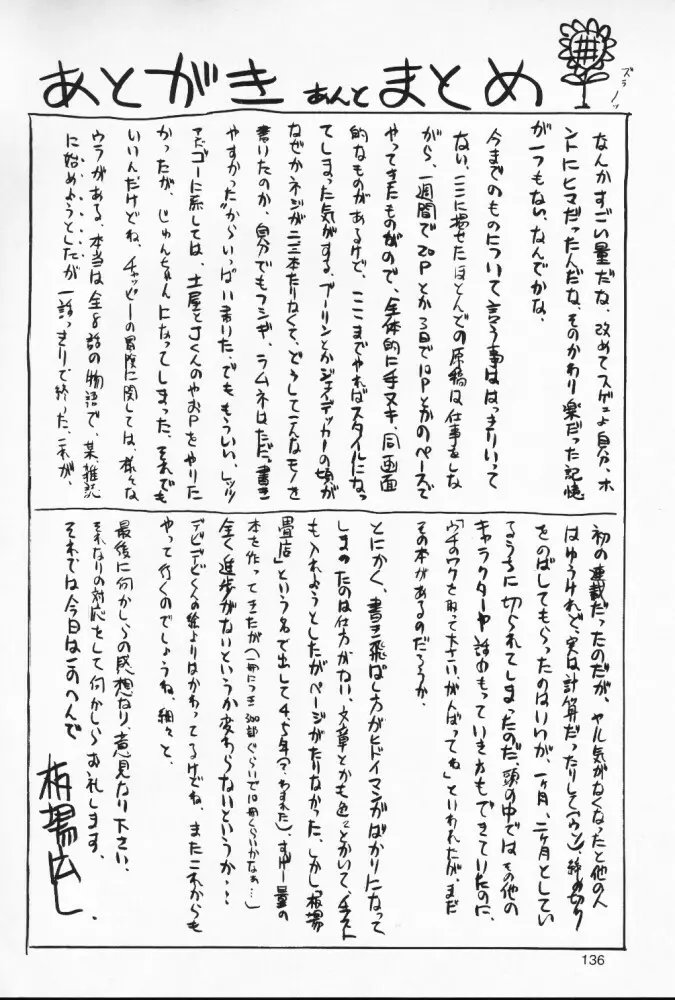 あとがき あんど まとめ
ズラーッ
なんかすごい量だな、改めてスゲェよ自分、ホ
ントにヒマだった人だな、そのかわり楽だった記憶
が一つもない、なんでかな、
今までのものについて言う事ははっきりいって
ない、ここに揚せたほとんどの原稿は仕事をしな
がら、一週間で20Pとか3日で12Pとかのペースで
やってきたものなので、全体的に手ヌキ、同画面
的なものがあるけど、ここまでやればスタイルになっ
てしまった気がする、プーリンとかジェイデッカーの頃が
なぜかネジが二三本たりなくて、どうしてこんなモノを
書いたのか、自分でもフシギ、ラムネはただ〝書き
やすかった〟からいっぱい書いた、でももういい、レッツ
アンドゴーに系しては、土屋とJくんのやおPをやりた
かったが、じゅんちゃんになってしまった、それでも
いいんだけどね、チャッピーの冒険に関しては、様々な
ウラがある、本当は全8話の物語で、某、雑誌
に始めようとしたが一話っきりで終った、これが、
初の連載だったのだが、ヤル気がなくなったと他の人
はゆうけれど、実は計算だったりして(ウソ)、締め切り
をのばしてもらったのはいいが、一ヶ月、二ヶ月としてい
るうちに切られてしまったのだ、頭の中ではその他の
キャラクターや話のもっていき方もできていたのに、
「ウチのワクを取って下さい、がんばってね」といわれたが、まだ
その本があるのだろうか、
とにかく、書き飛ばし方がヒドイマンガばかりになって
しまったのは仕方がない、文章とかも色々とかいて、イラスト
も入れようとしたがページがたりなかった、しかし「板場
畳店」という名で出して4、5年(?、わすれた)、すげー量の
本を作ってきたが(一冊につき300部ぐらいで10冊くらいかなぁ…)
全く進歩がないというか変わらないというか…
デビデビくんの絵よりはかわってるけどね、またこれからも
やって行くのでしょうね、細々と、
最後に何かしらの感想なり、意見なり下さい、
それなりの対応をして何かしらお礼します、
それでは今日はこのへんで
板場広し、
136